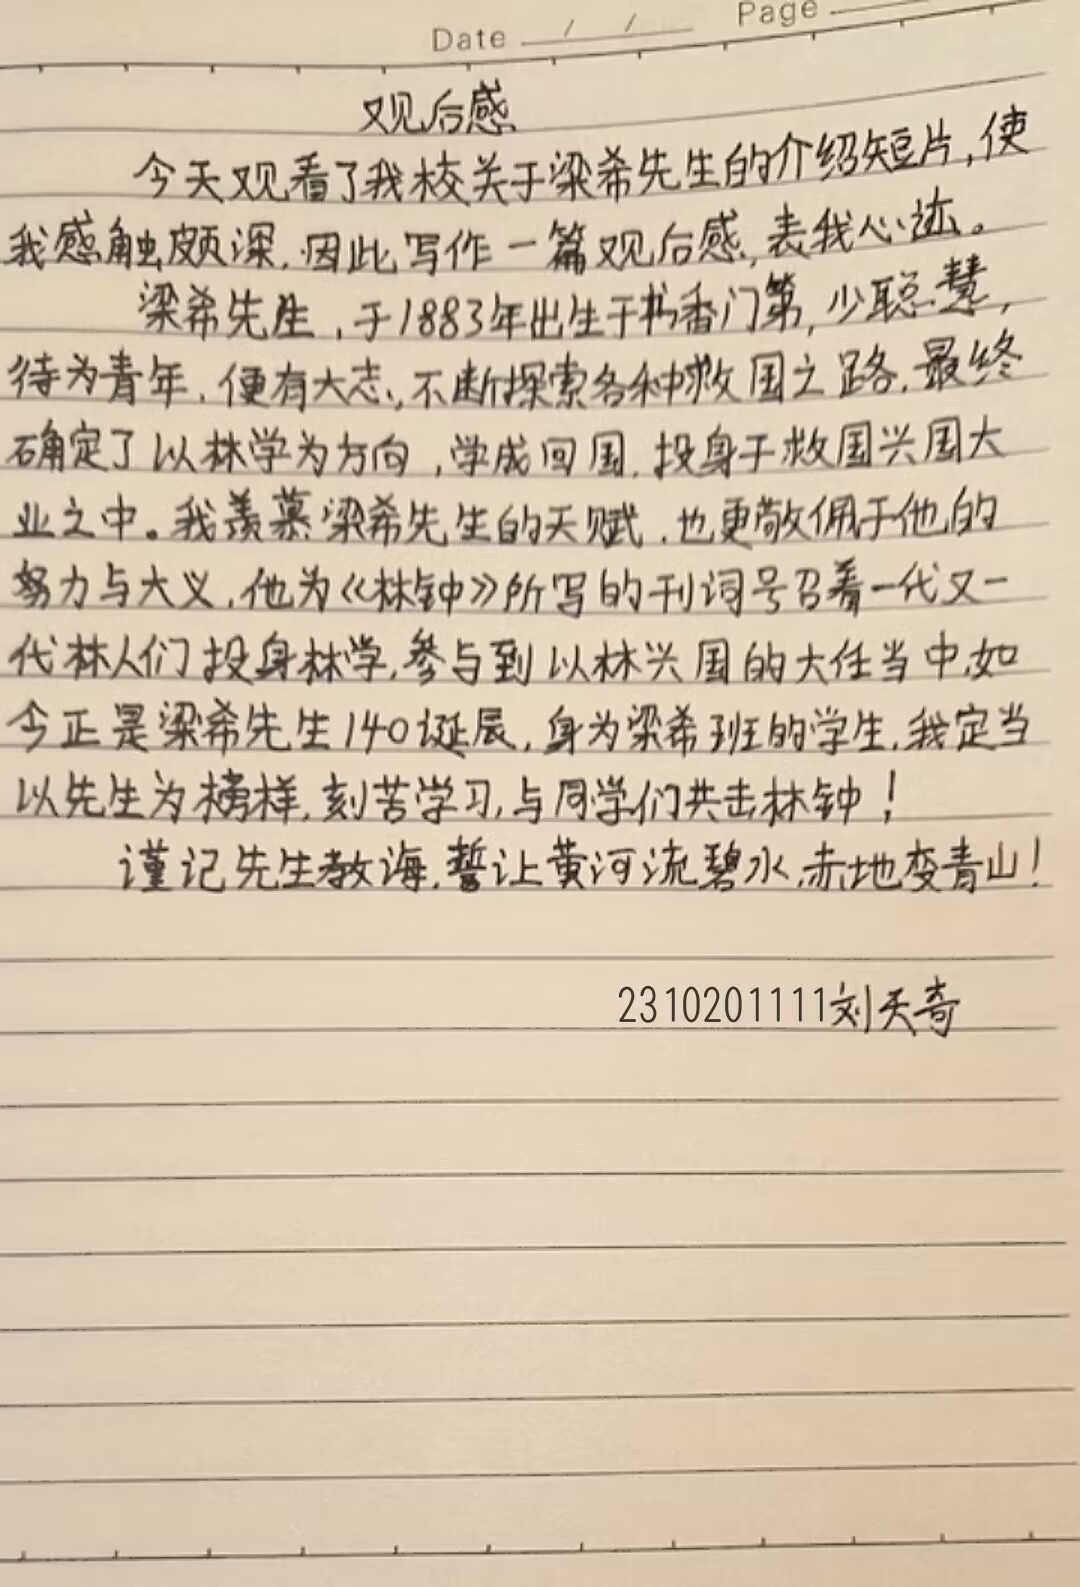 Date / / Page
观后感
今天观看了我校关于梁希先生的介绍短片,使
我感触颇深,因此写作一篇观后感,表我心迹。
梁希先生,于1883年出生于书香门第,少聪慧,
待为青年,便有大志,不断探索各种救国之路,最终
确定了以林学为方向,学成回国,投身于救国兴国大
业之中。我羡慕梁希先生的天赋,也更敬佩于他的
努力与大义,他为《林钟》所写的刊词号召着一代又一
代林人们投身林学,参与到以林兴国的大任当中,如
今正是梁希先生140诞辰,身为梁希班的学生,我定当
以先生为榜样,刻苦学习,与同学们共击林钟!
谨记先生教诲,誓让黄河流碧水,赤地变青山!
2310201111刘天奇